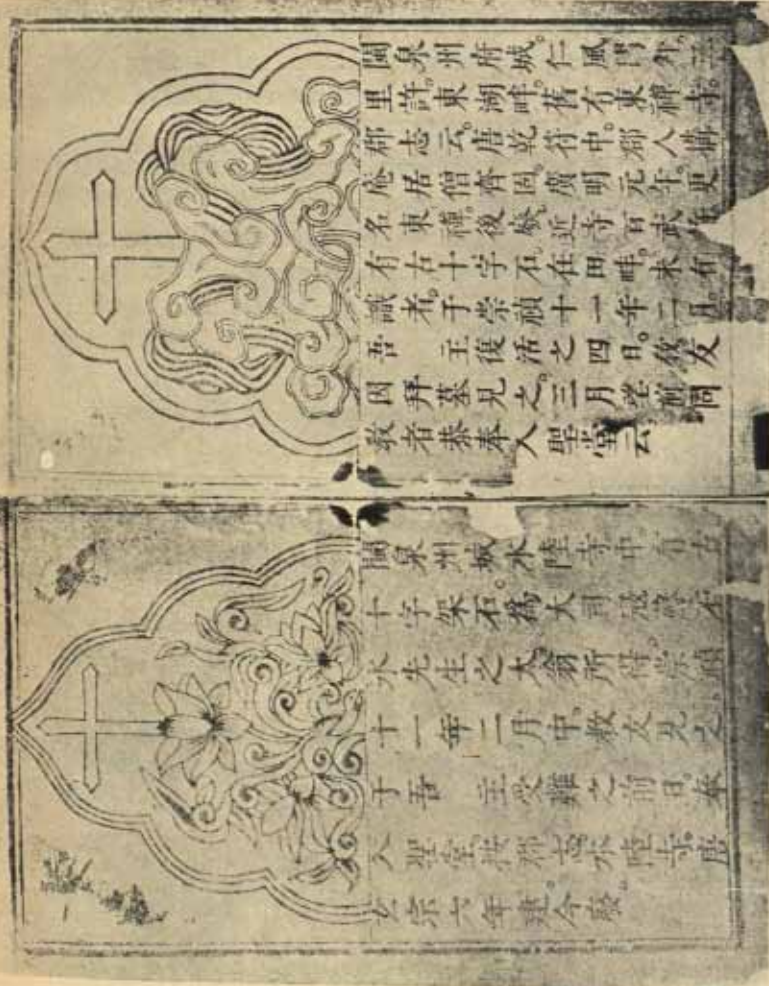 閩泉州府城。仁風門外。三
里許。東湖畔。舊有東禪寺。
郡志云。唐乾符中。郡人搆
庵居僧齊固。廣明元年。更
名東禪。後廢。近寺百武
有古十字石。在田畔。未有
識者。于崇禎十一年二月。
吾 主復活之四日。教友
因拜墓見之。三月望前同
教者恭奉入聖堂云
閩泉州城。水陸寺中。有古
十字架石。為大司寇蘇石
水先生之太翁所得。崇禎
十一年二月中。教友見之
于吾 主受難之前日。奉
入聖堂。按郡志。水陸寺。唐
玄宗六年建。今廢。